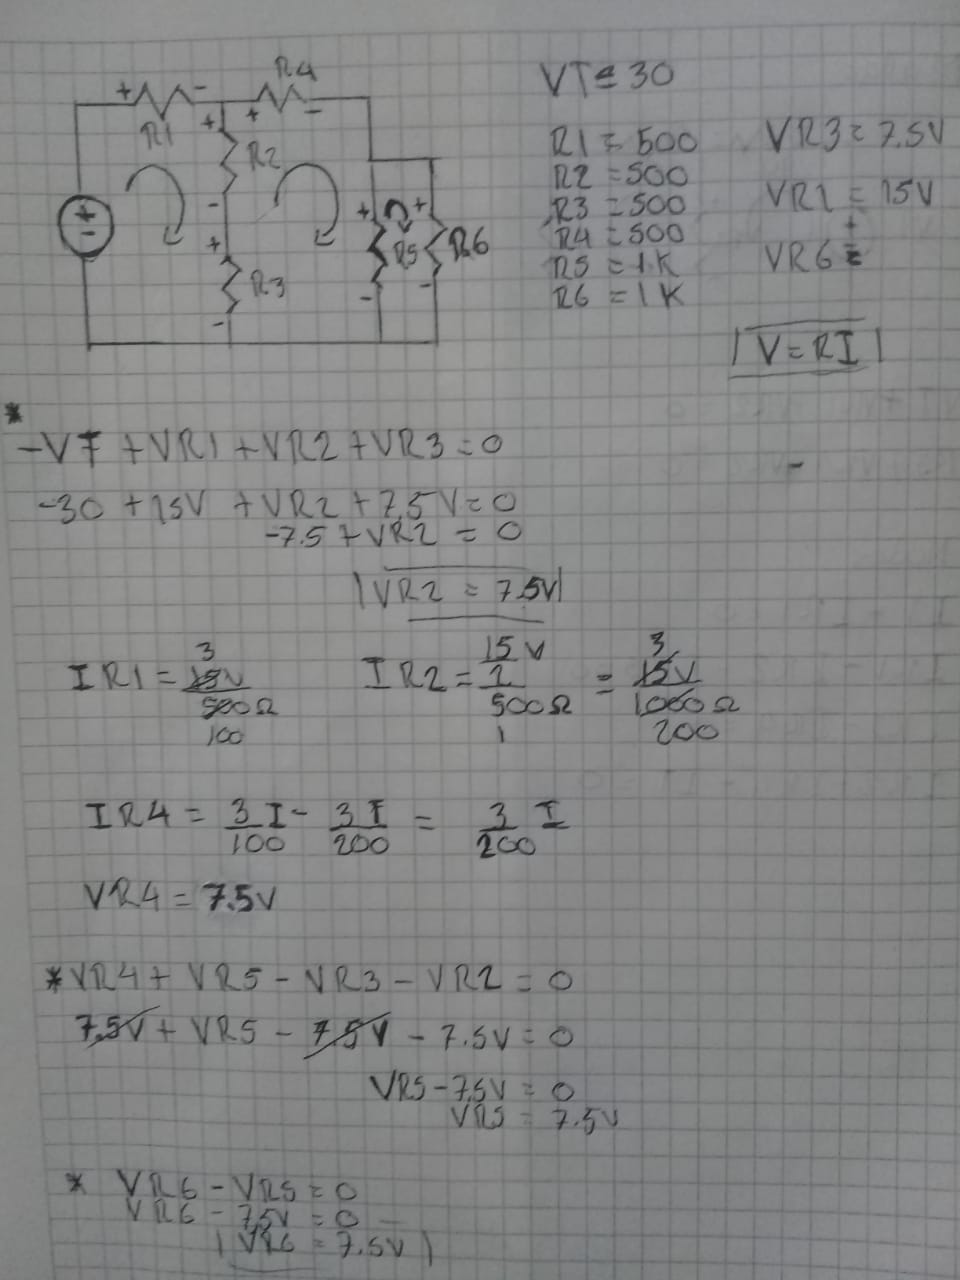 VT = 30
R1 = 500
R2 = 500
R3 = 500
R4 = 500
R5 = 1K
R6 = 1K
VR3 = 7.5V
VR1 = 15V
VR6 =
V = RI
+ R1 -
+ R4 -
+ R2 -
+ R3 -
+ R5 -
+ R6 -
+
-
* -VT + VR1 + VR2 + VR3 = 0
-30 + 15V + VR2 + 7.5V = 0
-7.5 + VR2 = 0
VR2 = 7.5V
IR1 = 15V/500Ω 3 100
IR2 = 15V/2/500Ω 1 = 15V/1000Ω 3 200
IR4 = 3/100 I - 3/200 I = 3/200 I
VR4 = 7.5V
* VR4 + VR5 - VR3 - VR2 = 0
7.5V + VR5 - 7.5V - 7.5V = 0
VR5 - 7.5V = 0
VR5 = 7.5V
* VR6 - VR5 = 0
VR6 - 7.5V = 0
VR6 = 7.5V